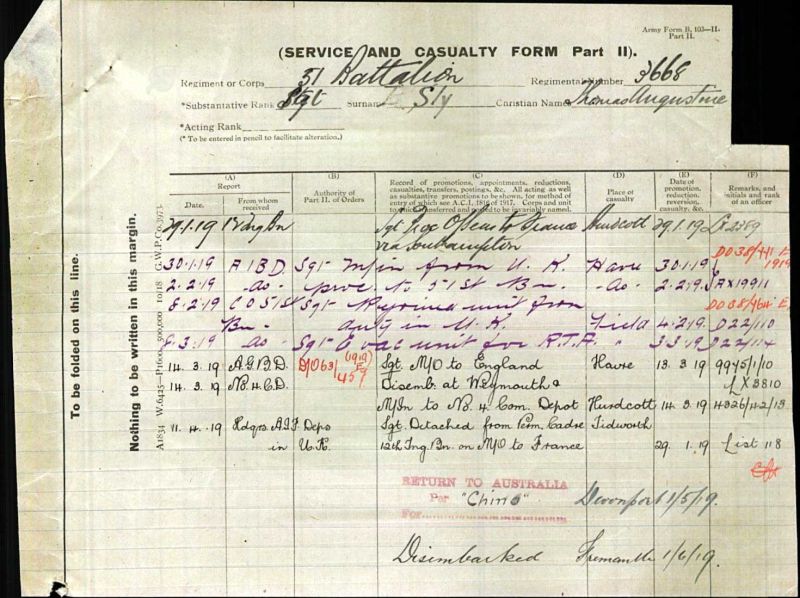 Army Form B. 103—II.
Part II.
(SERVICE AND CASUALTY FORM Part II).
Regiment or Corps 51 Battalion Regimental Number 3668
*Substantive Rank Sgt Surname Sly Christian Name Thomas Augustine
*Acting Rank
(* To be entered in pencil to facilitate alteration.)
(A) (B) (C) (D) (E) (F)
Report
Date. From whom received
Authority of Part II. of Orders
Record of promotions, appointments, reductions, casualties, transfers, postings, &c. All acting as well as substantive promotions to be shown, for method of entry of which see A.C.I. 1816 of 1917. Corps and unit to which transferred and posted to be invariably named.
Place of casualty
Date of promotion, reduction, reversion, casualty, &c.
Remarks, and initials and rank of an officer
29.1.19 Sgt Proc O'Seas to France Hurdcott 29.1.19
via Southampton
DO 38/
1919
30.1.19 A I B D. Sgt M/in from U.K. Havre 30.1.19
2.2.19 -do- proc. to 51st Bn. -do- 2.2.19 AX19911
DO 38/
6.2.19 C O 51st Sgt Rejoined unit from
Bn. duty in U.K. Field 4.2.19 D22/110
8.3.19 -do- Sgt Evac unit for R.T.A. " 3.3.19 D22/114
14.3.19 A.G.B.D. D/O63/457 (1919) Sgt. M/O to England Havre 13.3.19 9945/1/10
14.3.19 No. 4 C.D. Disemb. at Weymouth & LX3810
M/In to No. 4 Com. Depot Hurdcott 14.3.19 4326/42/13
11.4.19 Hdqrs. A.I.F Deps Sgt Detached from Perm. Cadre Tidworth
in U.K. 12th Tng. Bn. on M/O to France 29.1.19 List 118
RETURN TO AUSTRALIA
Per "China" Devonport 1/5/19.
For
Disembarked Fremantle 1/6/19.
To be folded on this line.
Nothing to be written in this margin.
A1834 W.6425—P1600 500,000 10/18 G.W.P.Co.3973